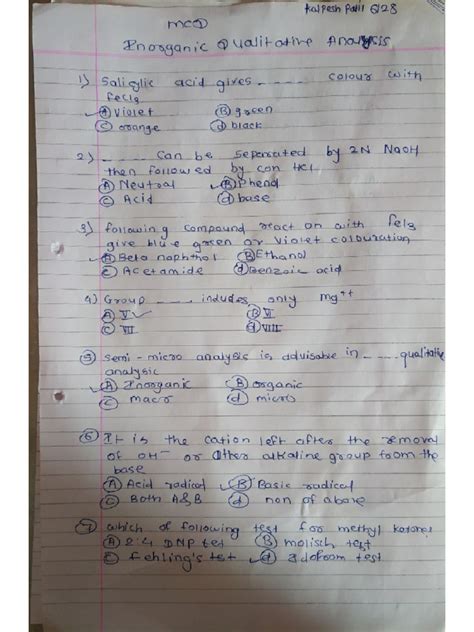 Kalpesh Patil 6128
MCQ
Inorganic Qualitative Analysis
1) Salicylic acid gives ---- colour with
fecl3
A violet B green
C orange d black
2) ---- Can be seperated by 2N NaOH
then followed by con HCl
A Neutral B Phenol
C Acid d base
3) following compound react on with fecl3
give blue green or violet colouration
A Beta naphthol B Ethanol
C Acetamide d Benzoic acid
4) Group ---- includes only mg++
A V B VI
C VII d VIII
5 semi-micro analysis is advisable in ---- qualitative
analysis
A Inorganic B organic
C macro d micro
6 It is the cation left after the removal
of OH- or other alkaline group from the
base
A Acid radical B Basic radical
C Both A&B d non of above
7 which of following test for methyl ketones
A 2:4 DNP test B molisch test
C Fehling's test d Iodoform test